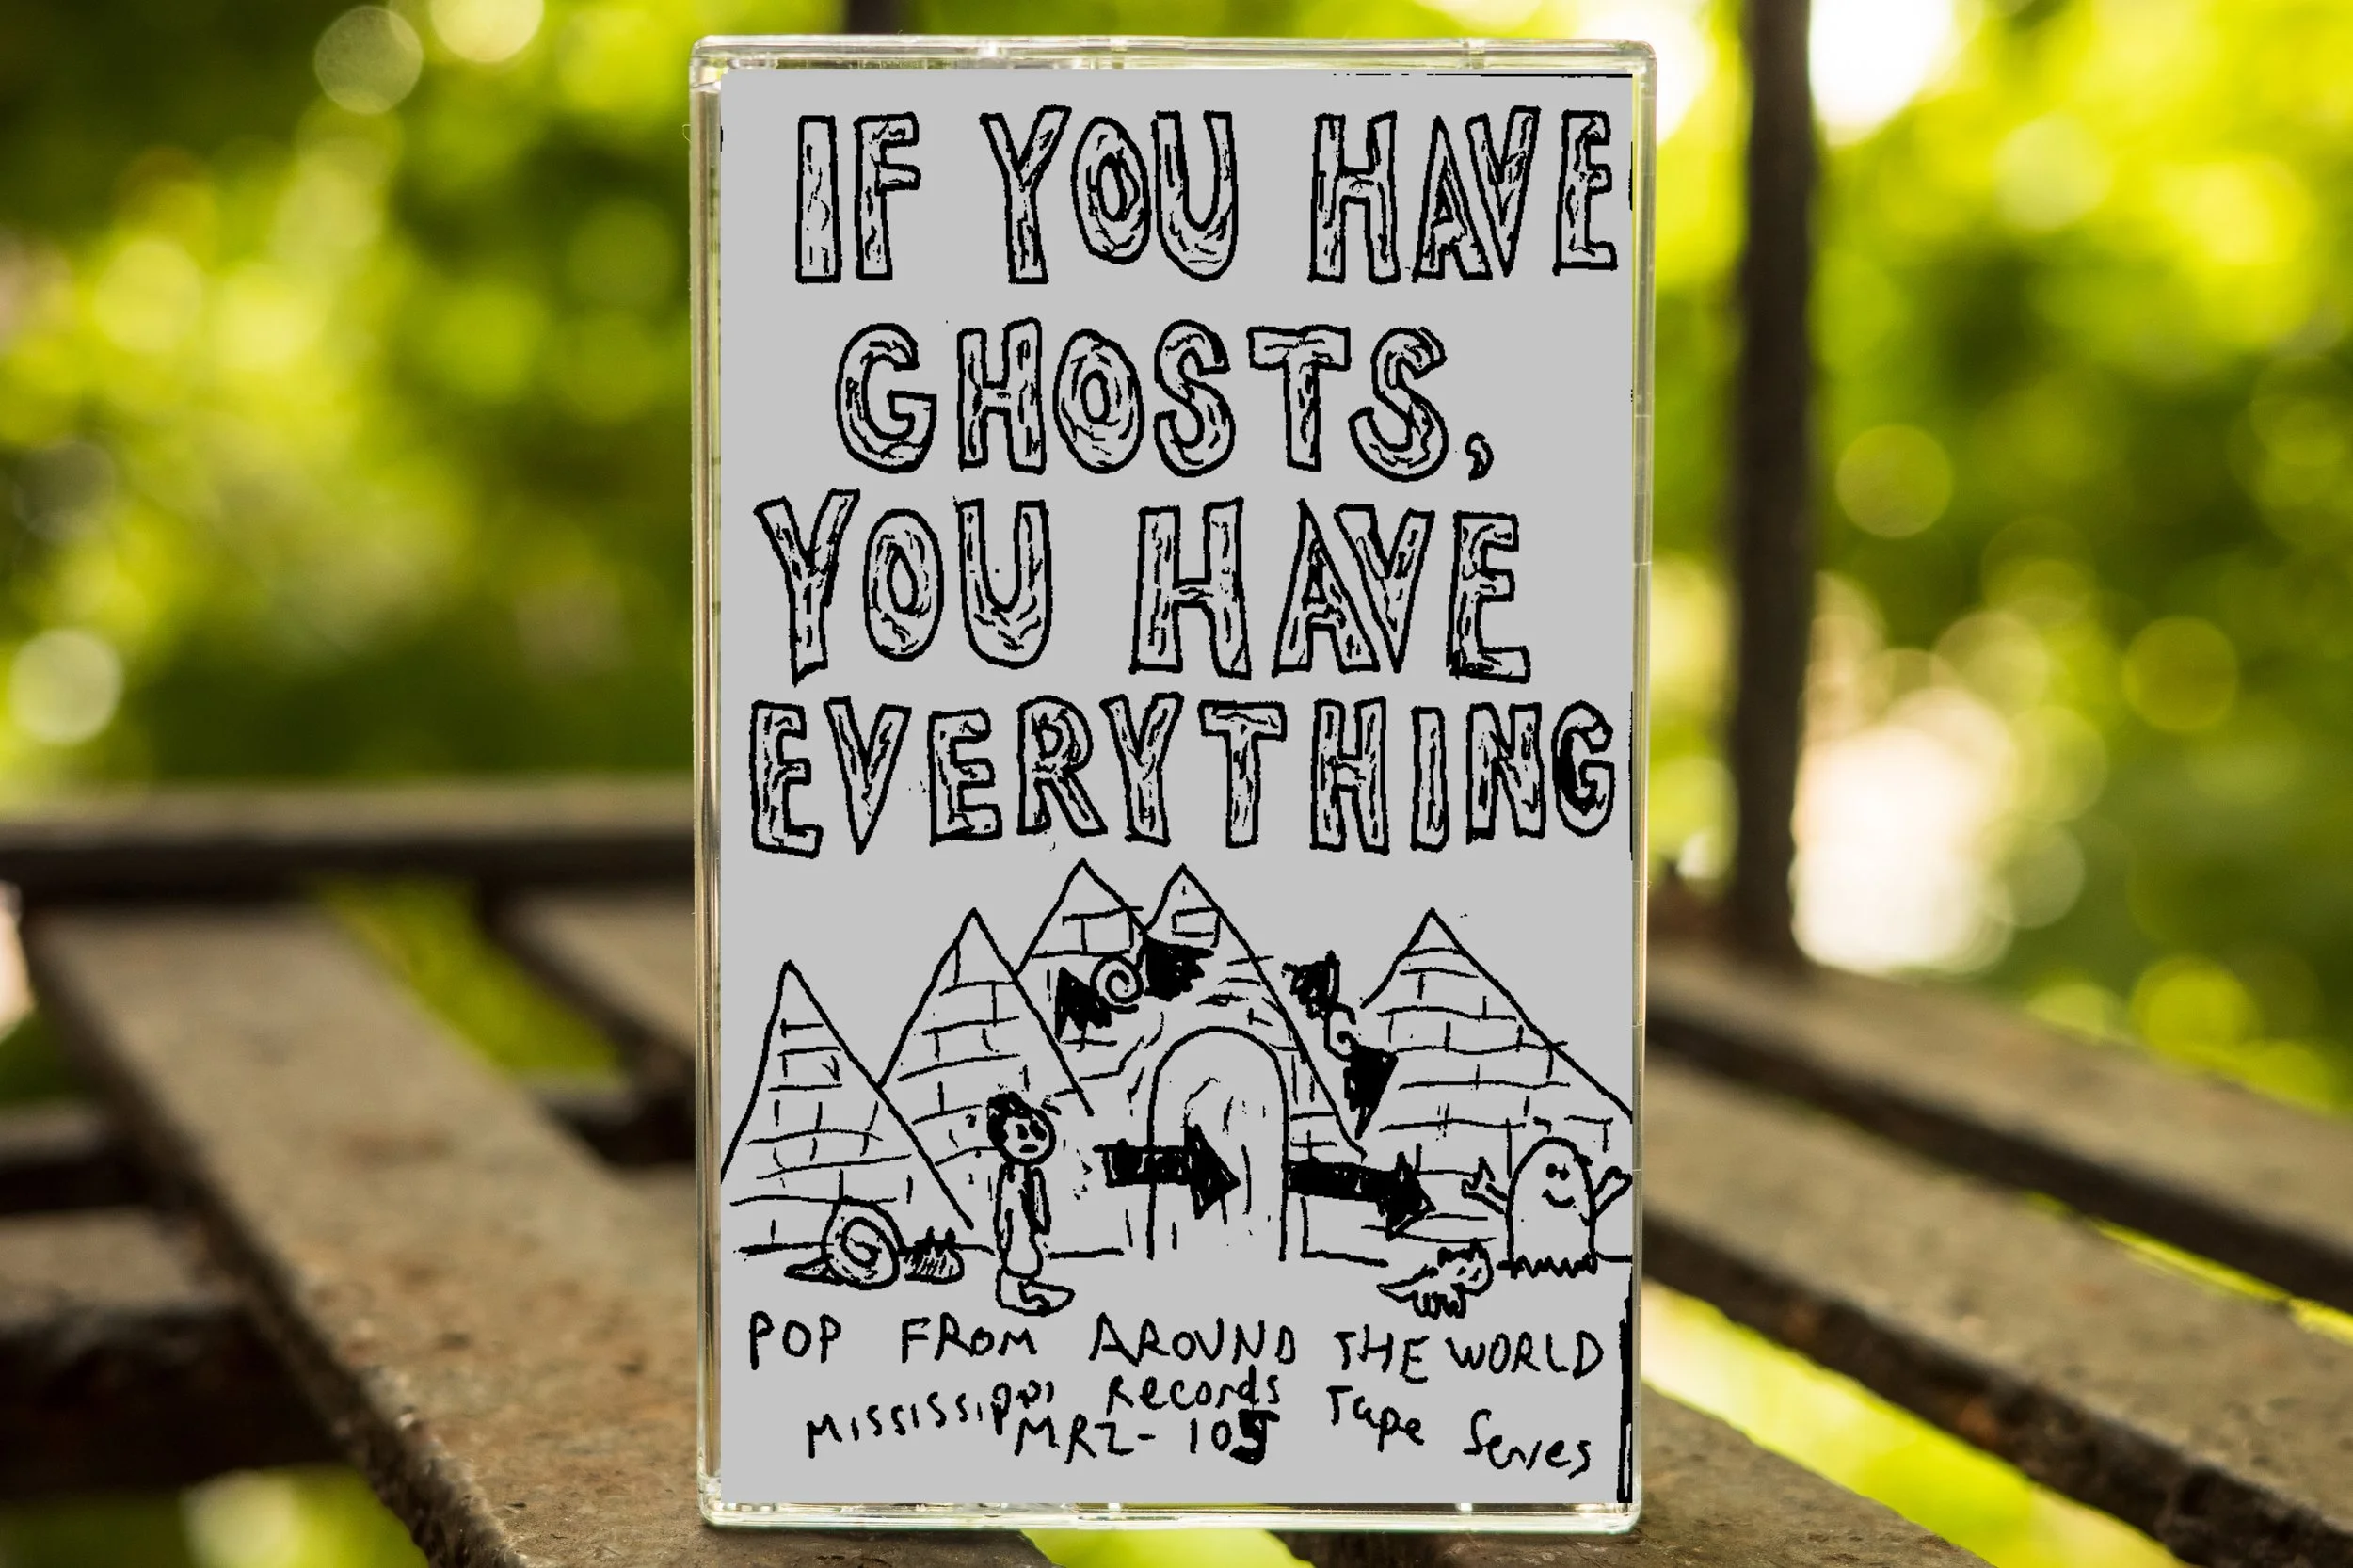 IF YOU HAVE
GHOSTS,
YOU HAVE
EVERYTHING
POP FROM AROUND THE WORLD
MISSISSIPPI Records Tape Series
MRZ-105